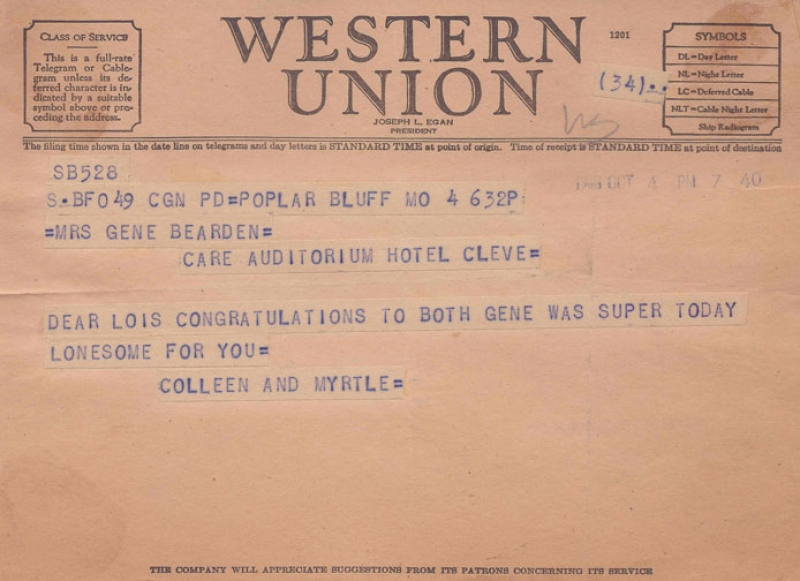 CLASS OF SERVICE
This is a full-rate
Telegram or Cable-
gram unless its de-
ferred character is in-
dicated by a suitable
symbol above or pre-
ceding the address.
WESTERN
UNION
1201
JOSEPH L. EGAN
PRESIDENT
(34)..
SYMBOLS
DL=Day Letter
NL=Night Letter
LC=Deferred Cable
NLT=Cable Night Letter
Ship Radiogram
The filing time shown in the date line on telegrams and day letters is STANDARD TIME at point of origin. Time of receipt is STANDARD TIME at point of destination
SB528
S.BFO49 CGN PD=POPLAR BLUFF MO 4 632P
OCT 4 PM 7 40
=MRS GENE BEARDEN=
CARE AUDITORIUM HOTEL CLEVE=
DEAR LOIS CONGRATULATIONS TO BOTH GENE WAS SUPER TODAY
LONESOME FOR YOU=
COLLEEN AND MYRTLE=
THE COMPANY WILL APPRECIATE SUGGESTIONS FROM ITS PATRONS CONCERNING ITS SERVICE